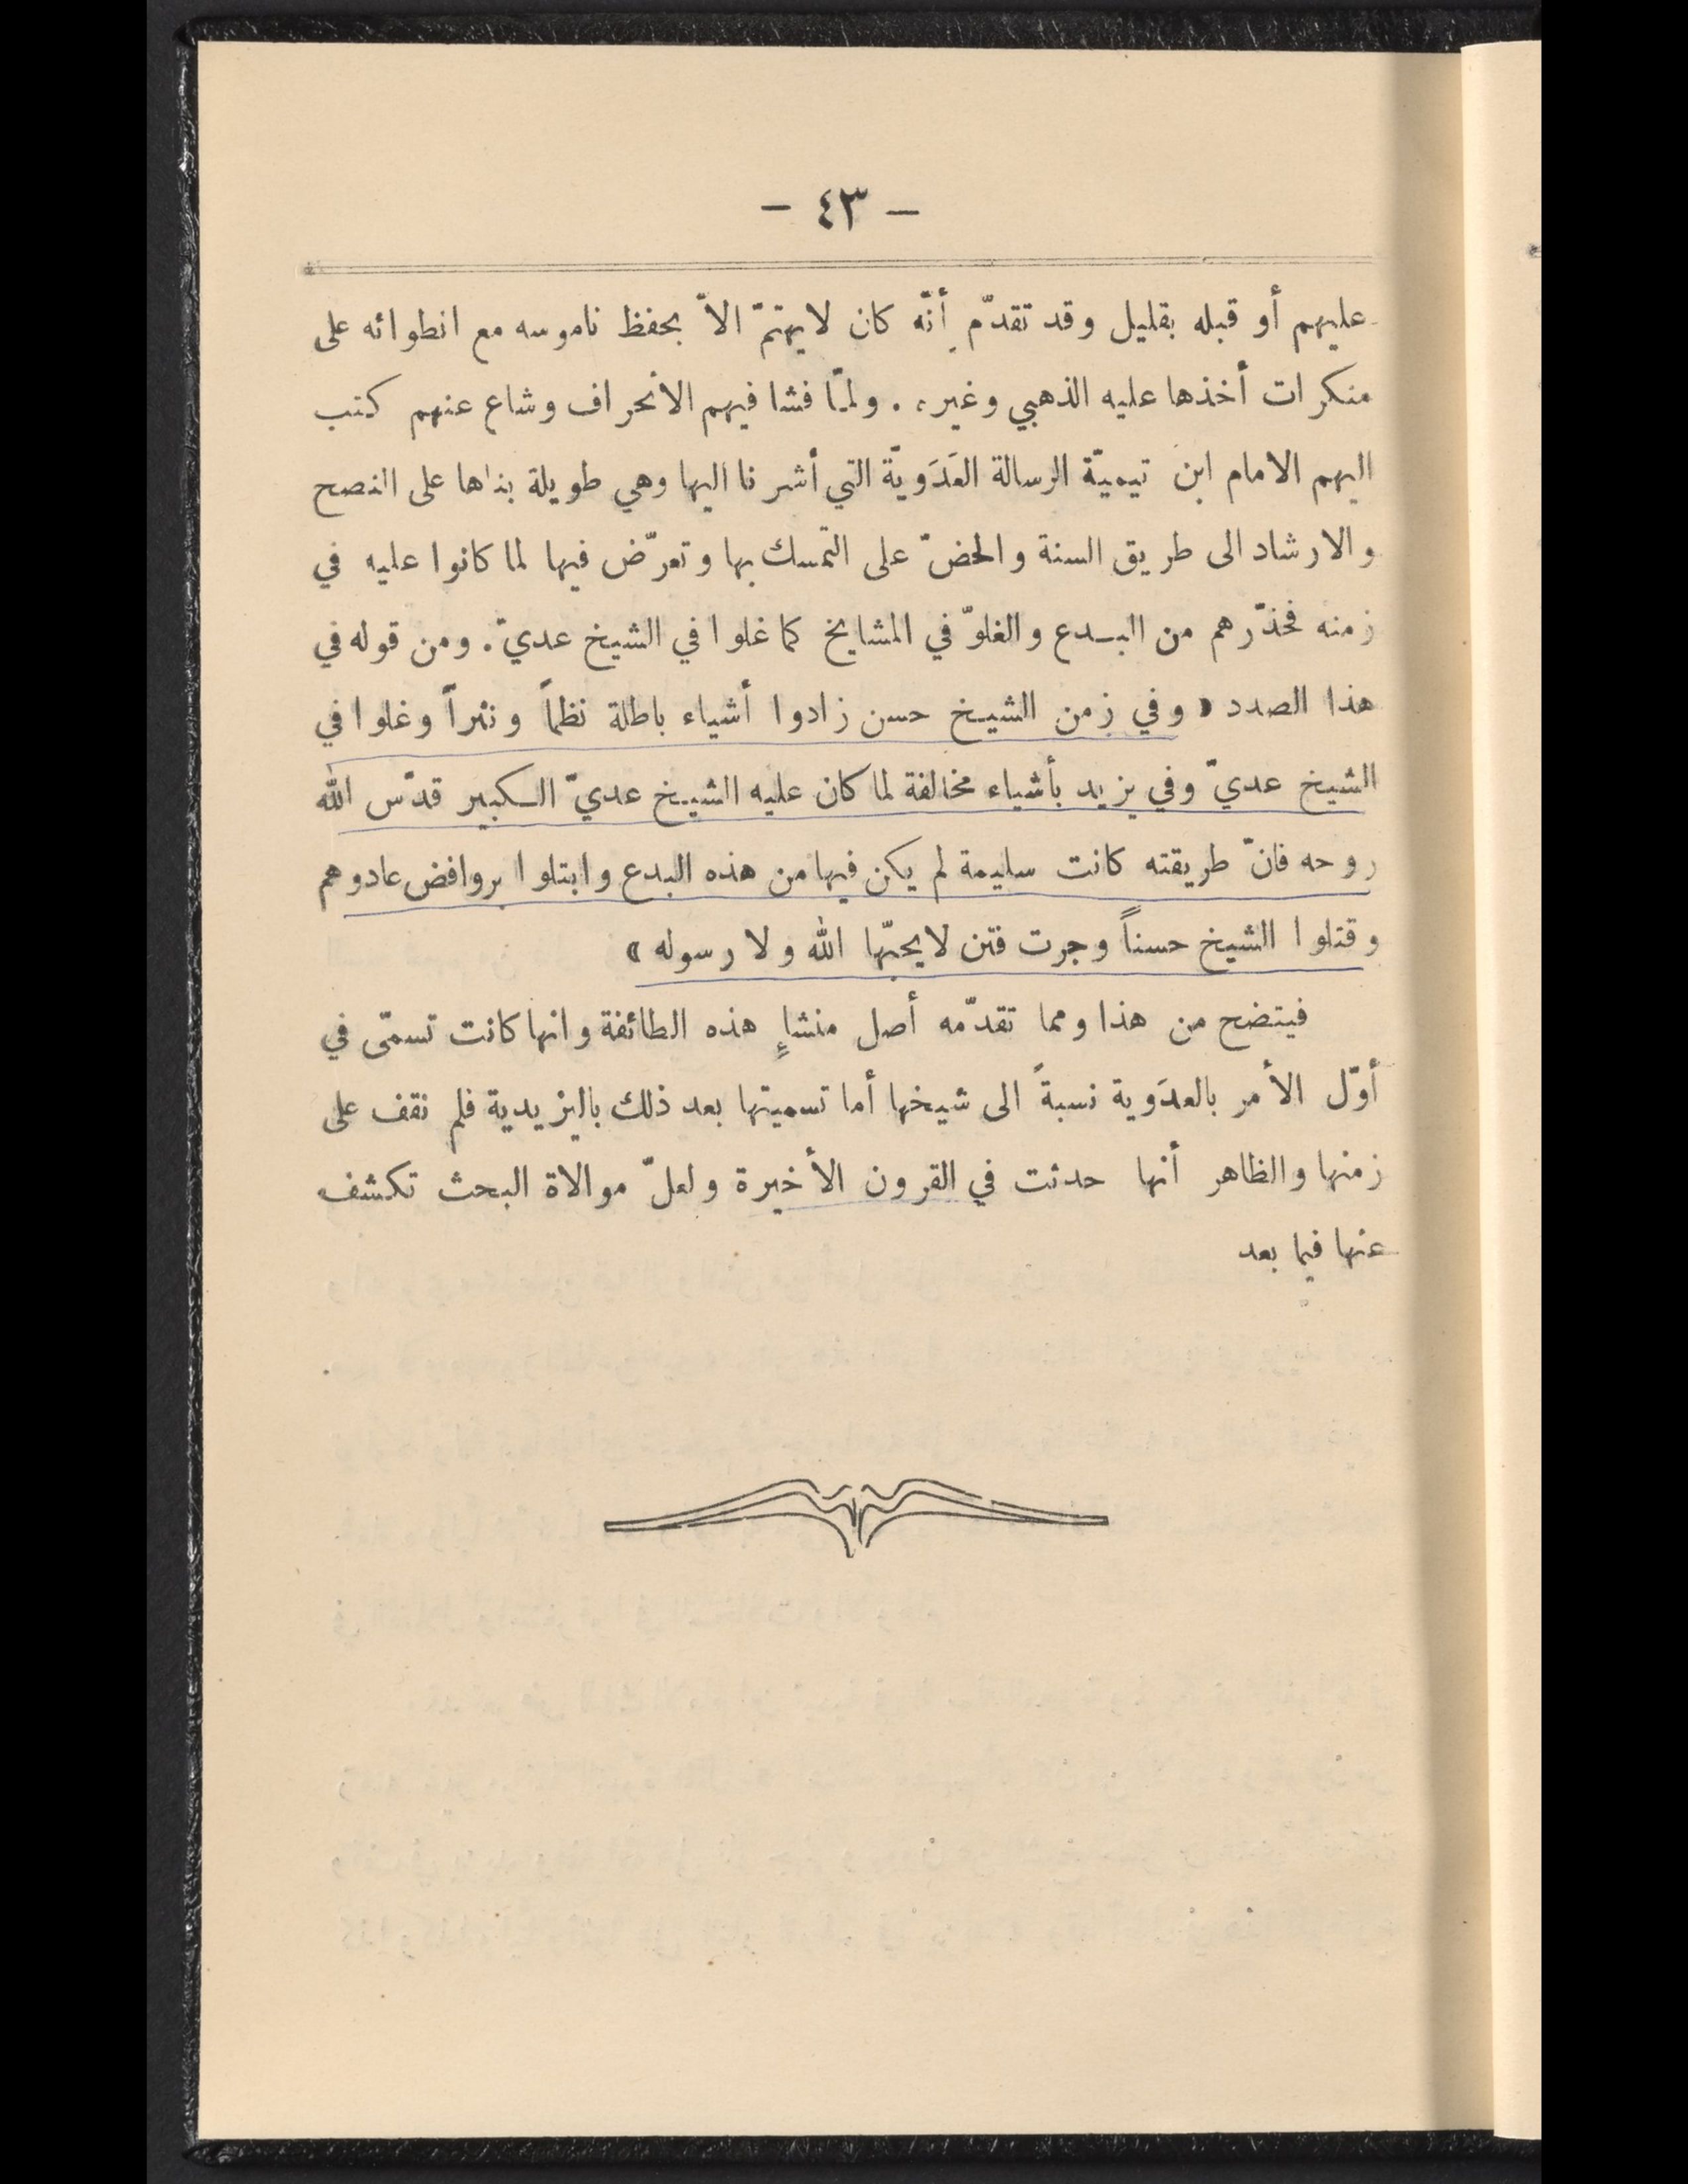 — ٤٣ —
عليهم أو قبله بقليل وقد تقدّم أنّه كان لايهتمّ الاّ بحفظ ناموسه مع انطوائه على
منكرات أخذها عليه الذهبي وغيره . ولمّا فشا فيهم الانحراف وشاع عنهم كتب
اليهم الامام ابن تيميّة الرسالة العَدَويّة التي أشرنا اليها وهي طويلة بناها على النصح
والارشاد الى طريق السنة والحضّ على التمسك بها وتعرّض فيها لما كانوا عليه في
زمنه فحذّرهم من البـدع والغلوّ في المشايخ كما غلوا في الشيخ عديّ . ومن قوله في
هذا الصدد « وفي زمن الشيخ حسن زادوا أشياء باطلة نظماً ونثراً وغلوا في
الشيخ عديّ وفي يزيد بأشياء مخالفة لما كان عليه الشيخ عديّ الـكبير قدّس الله
روحه فانّ طريقته كانت سليمة لم يكن فيها من هذه البدع وابتلوا بروافض عادوهم
وقتلوا الشيخ حسناً وجرت فتن لايحبّها الله ولا رسوله »
فيتضح من هذا ومما تقدّمه أصل منشإٍ هذه الطائفة وانها كانت تسمّى في
أوّل الأمر بالعدَوية نسبةً الى شيخها أما تسميتها بعد ذلك باليزيدية فلم نقف على
زمنها والظاهر أنها حدثت في القرون الأخيرة ولعلّ موالاة البحث تكشف
عنها فيما بعد